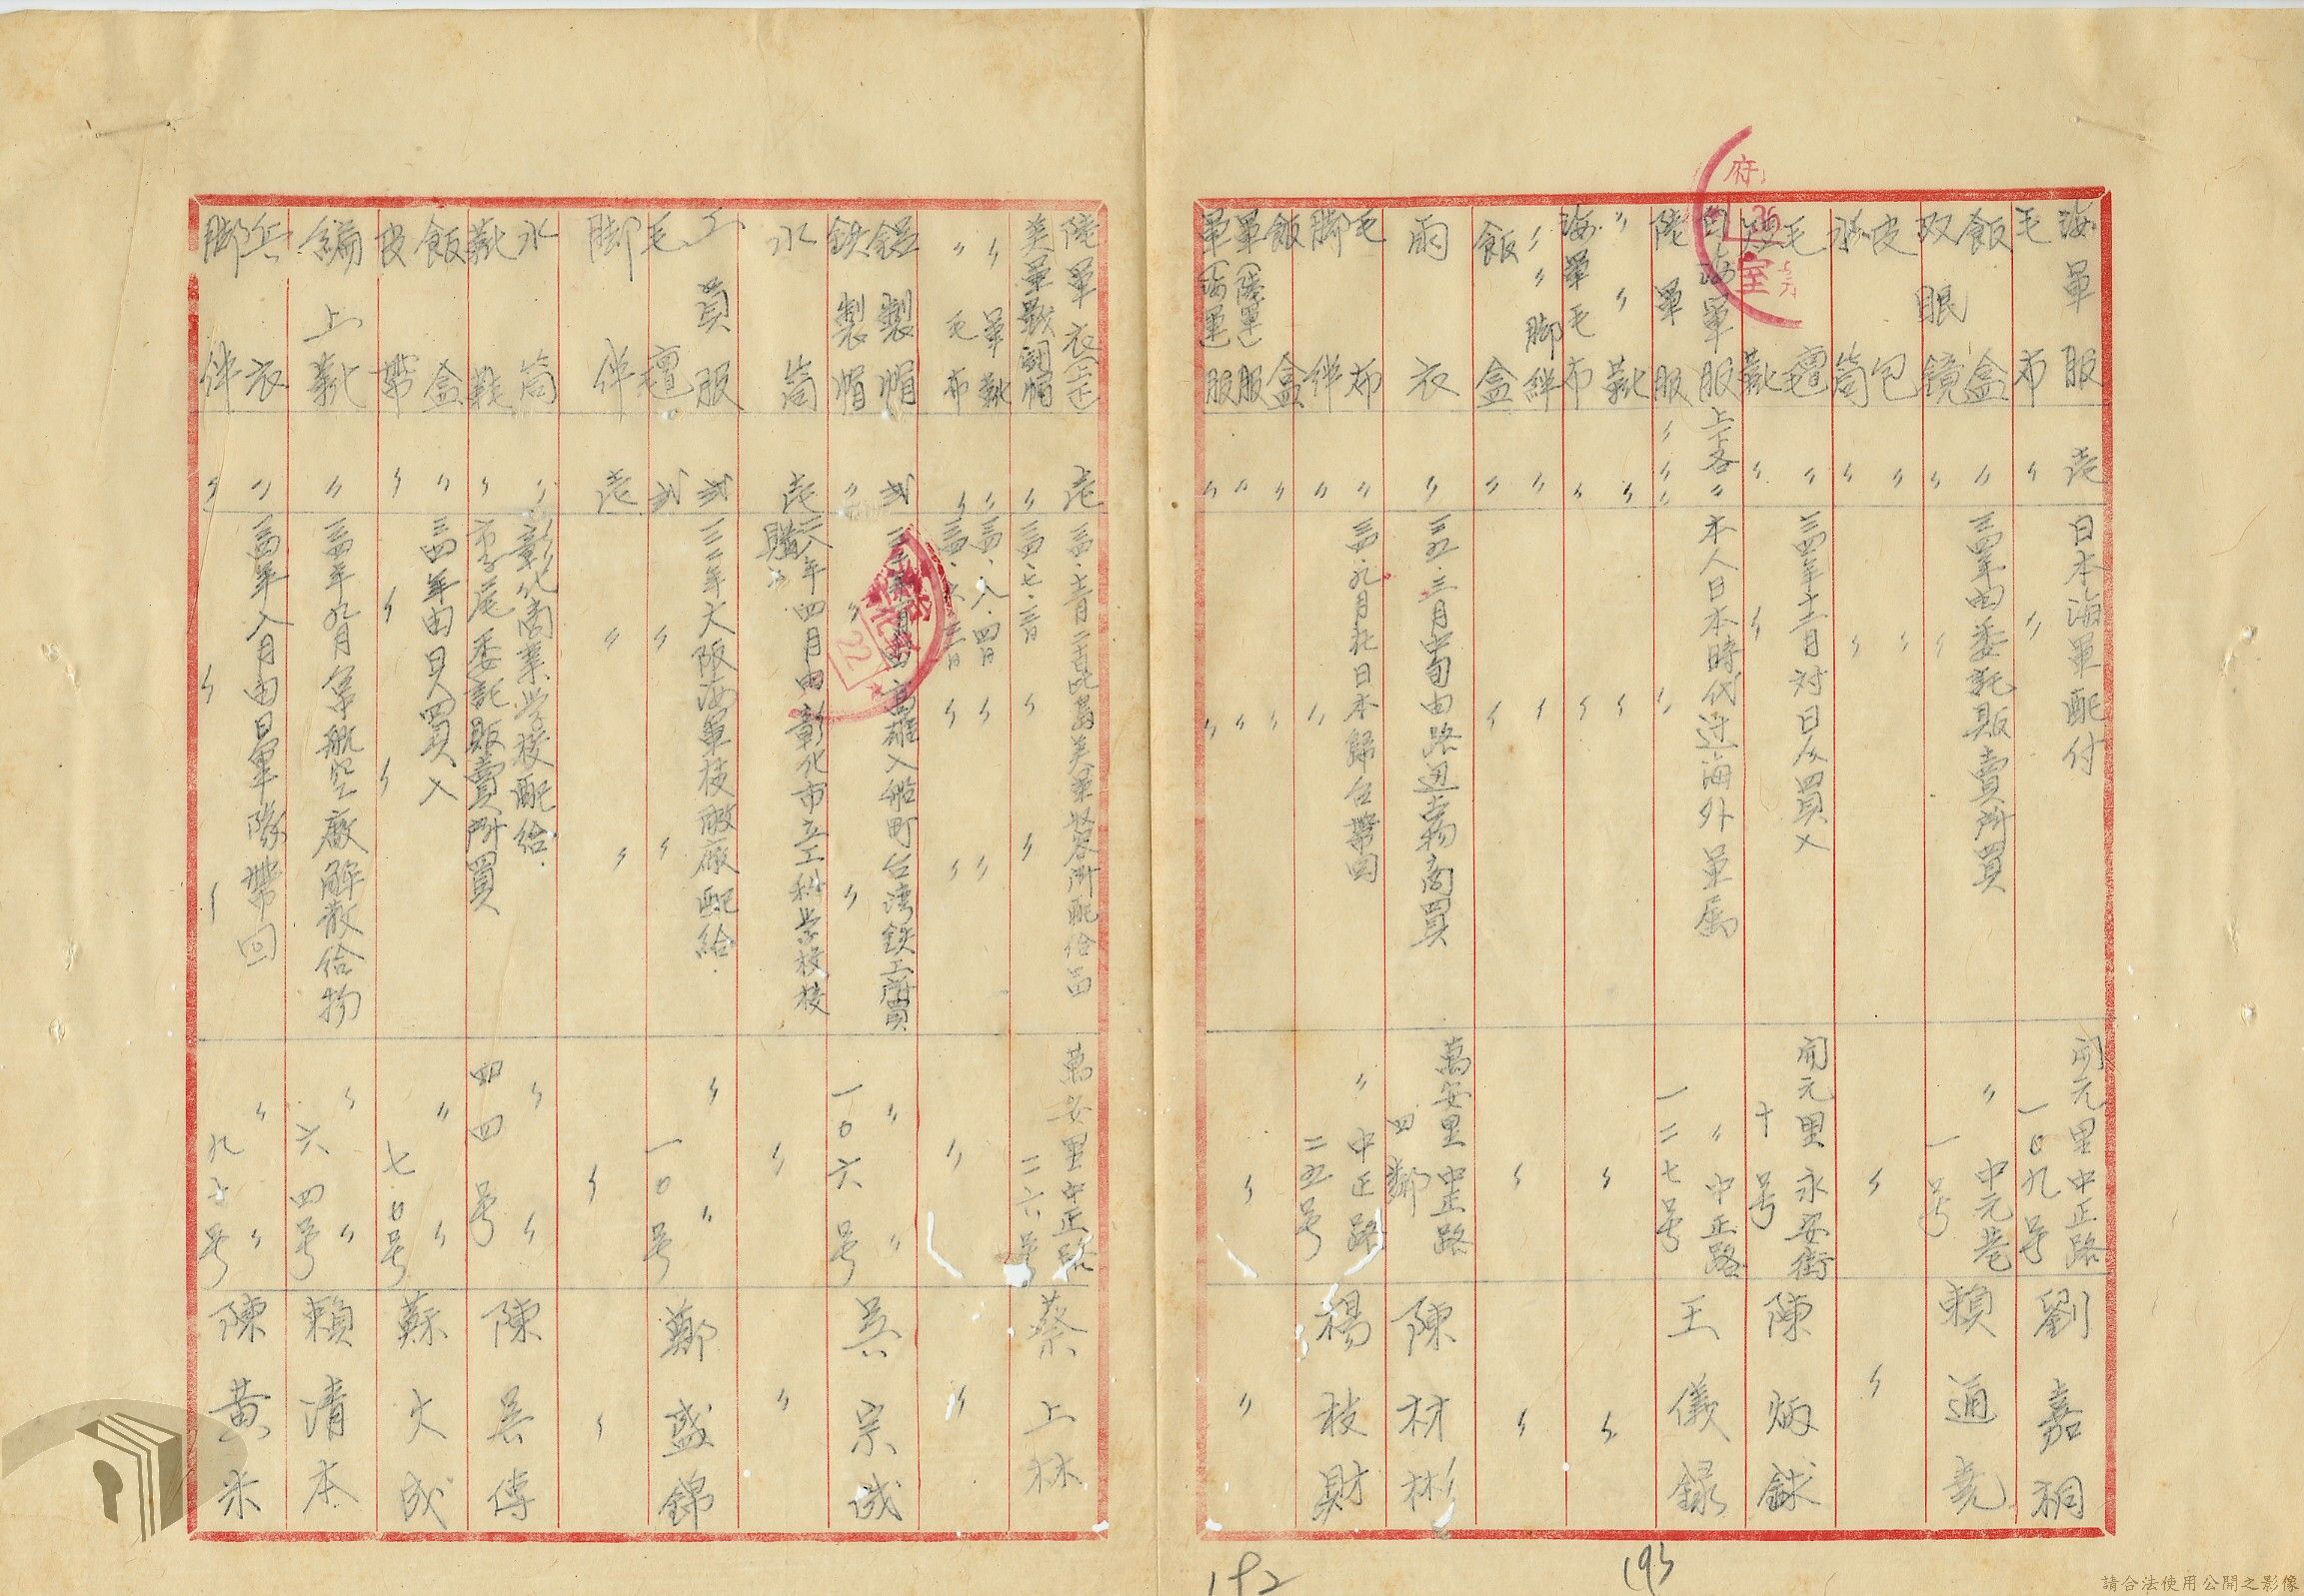 海軍服 壱 日本海軍配付 開元里中正路 劉嘉桐
毛布 〃 〃 一〇九号
飯盒 〃 三四年由委託販賣所買 〃 中元巷 賴通堯
双眼鏡 〃 〃 一号
皮包 〃 〃
水筒 〃 〃 〃 〃
毛氈 〃 三四年十二月対日人買入 開元里永安街 陳炳銶
靴 〃 〃 十号
海軍服 上下各〃 本人日本時代迋海外軍属 〃 中正路 王儀録
陸軍服 〃〃〃 〃 一二七号
〃〃靴 〃 〃
海軍毛布 〃 〃 〃 〃
〃〃脚絆 〃 〃
飯盒 〃 〃 〃 〃
雨衣 〃 三五.三月中旬由路邊古物商買 萬安里中正路 陳材彬
四鄰
毛布 〃 三四.九月於日本歸台帶回 〃 中正路 楊枝財
脚絆 〃 〃 二五号
飯盒 〃 〃
軍(陸軍)服 〃 〃 〃 〃
軍(海軍)服 〃 〃
陸軍衣(上下) 壱 美軍 配給品 萬安里中正路 蔡上林
美軍 帽 〃 三四.七.三日 〃 〃 二六号
〃軍靴 〃 三四.八.四日 〃 〃
〃毛布 〃 三四.六.三日 〃 〃 〃 〃
鋁製帽 弍 高雄入船町台湾鉄工所買 〃 〃 吳宗诚
鉄製帽 〃 〃 〃 一〇六号
水筒 壱 二八年四月由彰化市立工科学校校 〃 〃
購
工員服 弍 三二年大阪海軍被服廠配給. 〃 〃 鄭盛錦
毛氈 弍 〃 〃 一〇号
脚絆 壱 〃 〃 〃 〃
水筒 〃 彰化商業学校配給. 〃 〃 陳吳傳
靴 〃 市子尾委託販賣所買 四四号
飯盒 〃 三四年由日人買入 〃 〃 蘇大成
皮帶 〃 〃 〃 七〇号
編上靴 〃 三四年九月 航空廠解散給物 〃 〃 賴清本
六四号
兵衣 〃 三四年八月由日軍隊帶回 〃 〃 陳黃米
脚絆 〃 〃 〃 号
192
193
請合法使用公開之影像